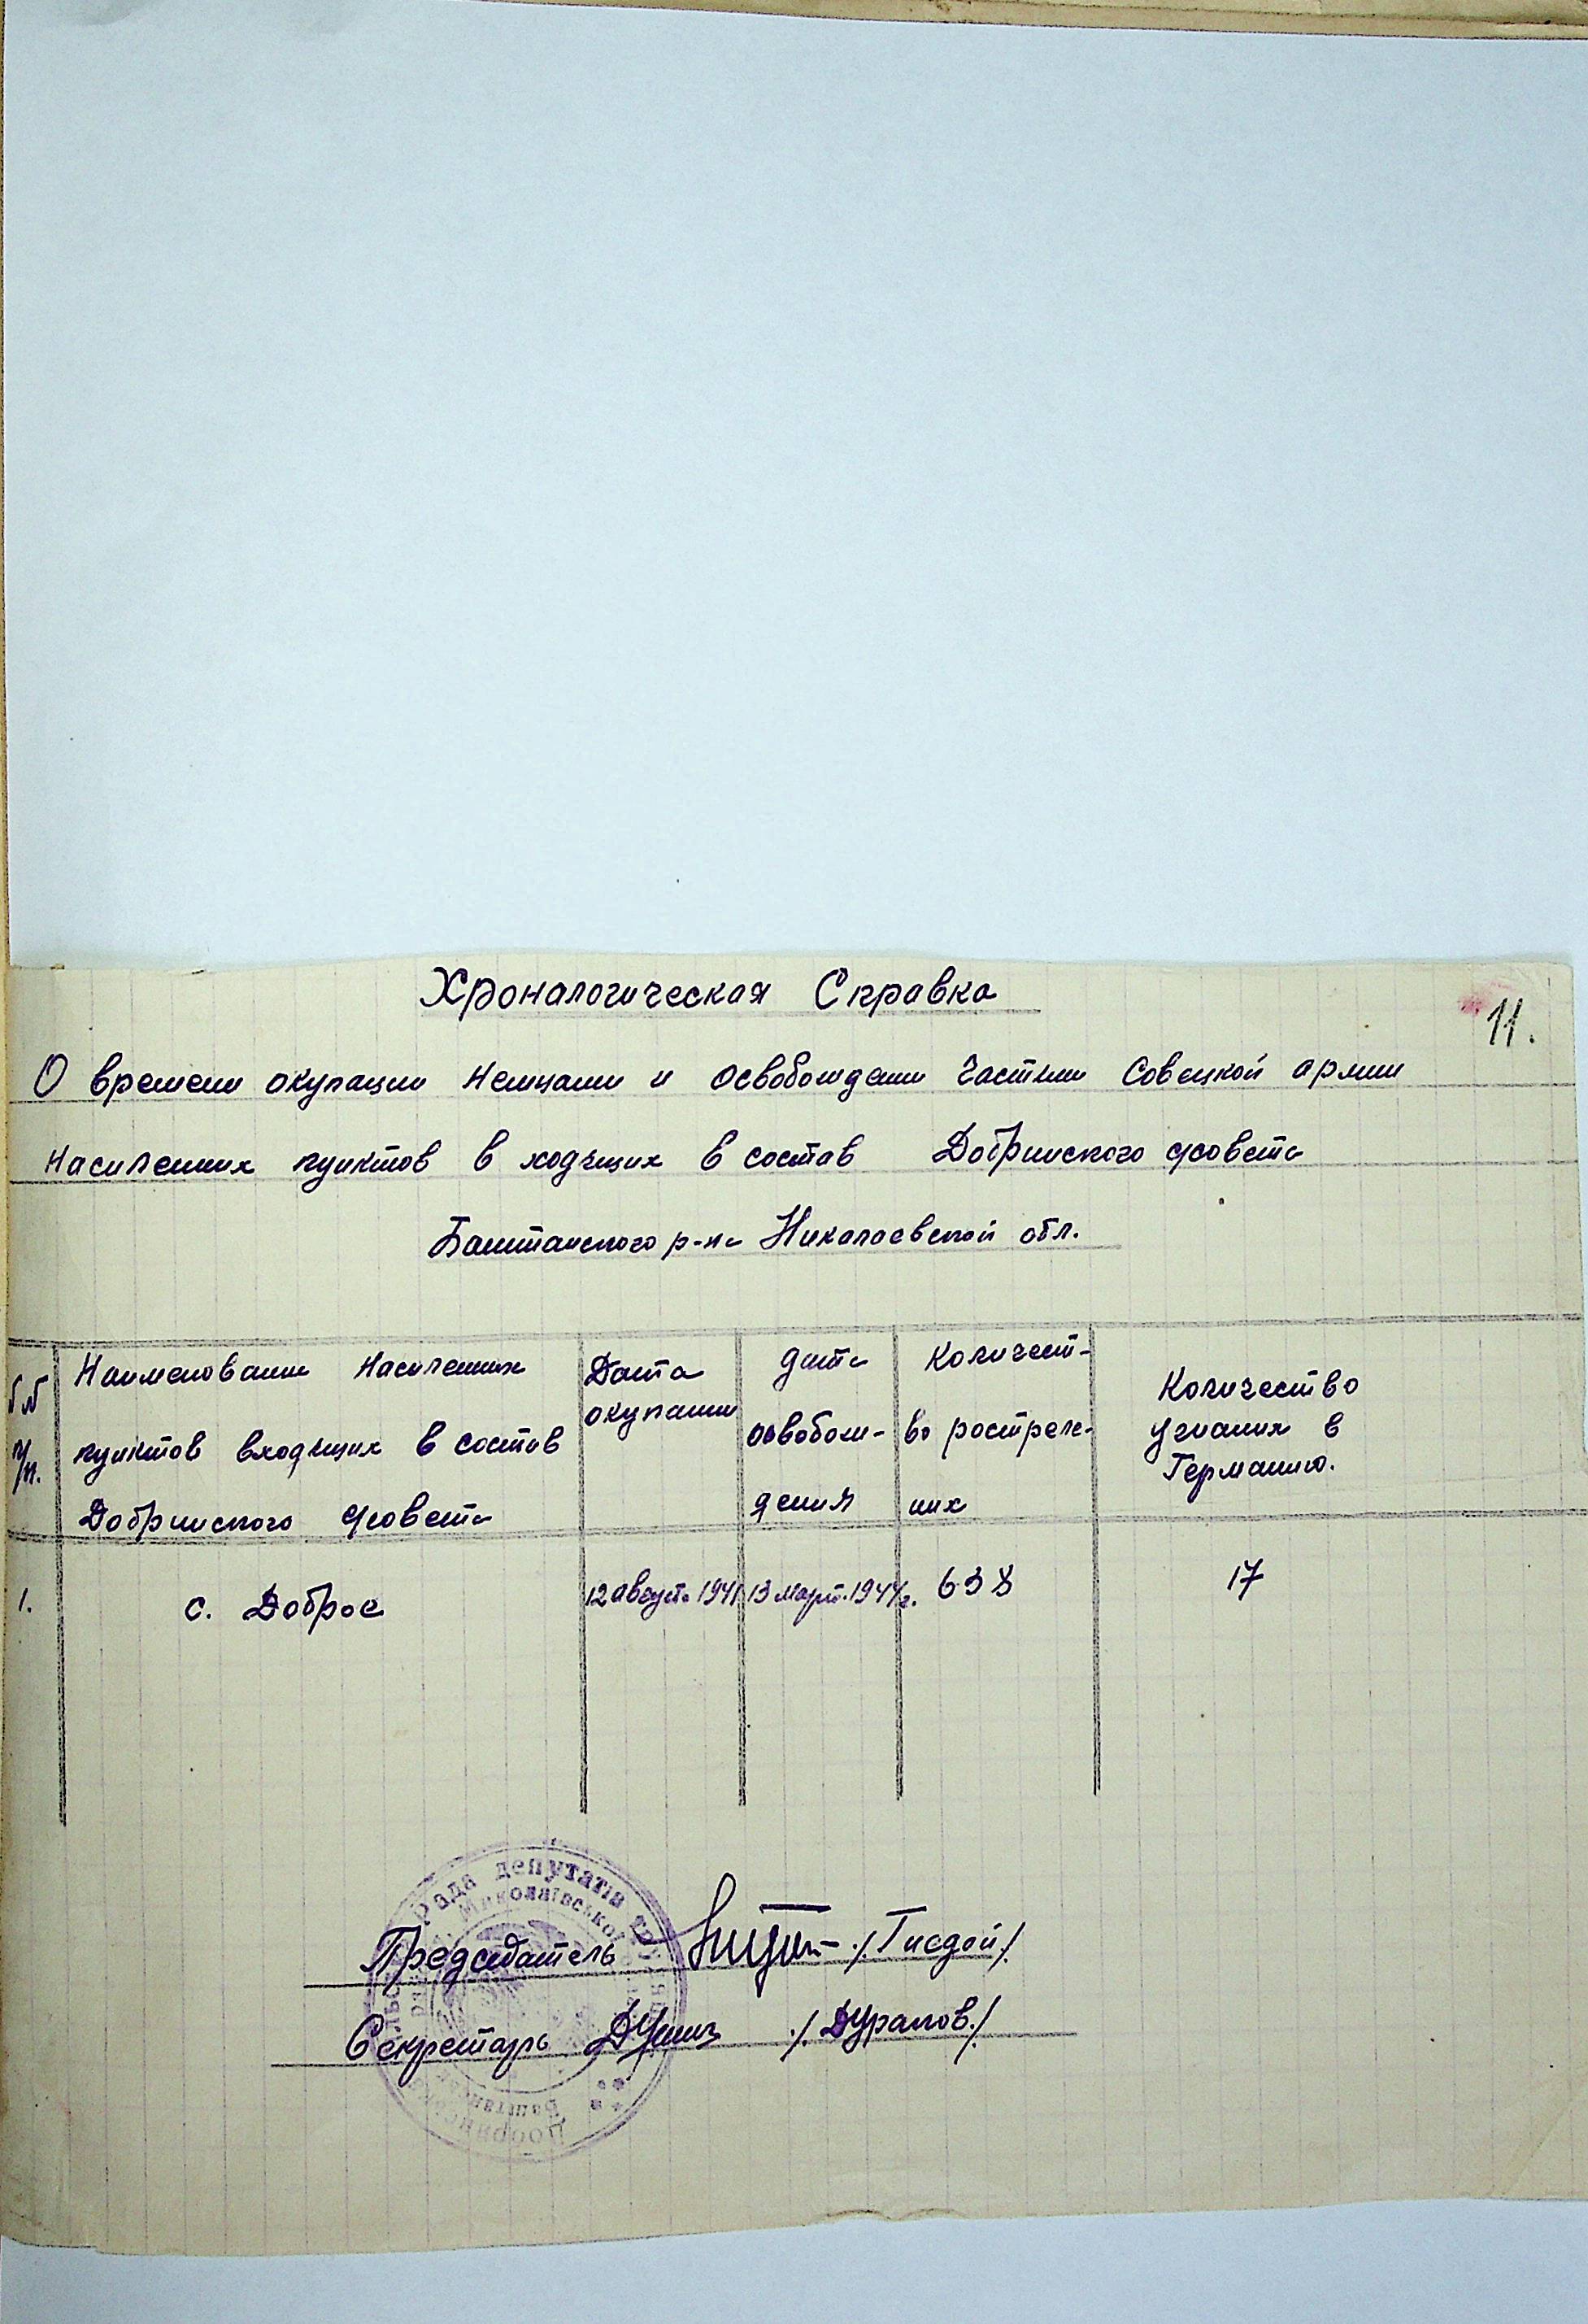 Хроналогическая Справка
11.
О времени окупации немцами и освобождении частями Совецкой армии
населенних пунктов в ходящих в состав Добринского с/совета
Баштанского р-на Николаевской обл.
№№ п/п. Наименование населенних пунктов входящих в состав Добринского с/совета
Дата окупации
дата освобож-дения
Количест-во рострелян-них
Количество угнаних в Германию.
1. с. Доброе 12 августа 1941 13 март. 1944г. 638 17
Рада депутатів
Миколаївської
Председатель /Гнедой/
Секретарь /Дурапов./
Баштансь
Добринсь